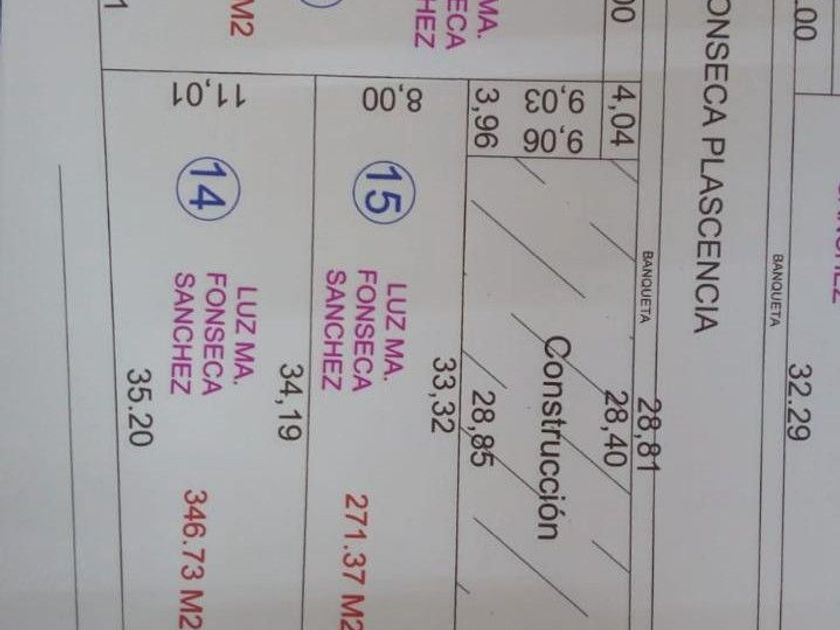 .00
32.29
BANQUETA
ONSECA PLASCENCIA
BANQUETA
28,81
00
4,04
28,40
9,03
9,06
Construcción
3,96
28,85
MA.
ECA
HEZ
33,32
8,00
15
LUZ MA.
FONSECA
SANCHEZ
271.37 M2
34,19
M2
11,01
14
LUZ MA.
FONSECA
SANCHEZ
346.73 M2
35.20
1